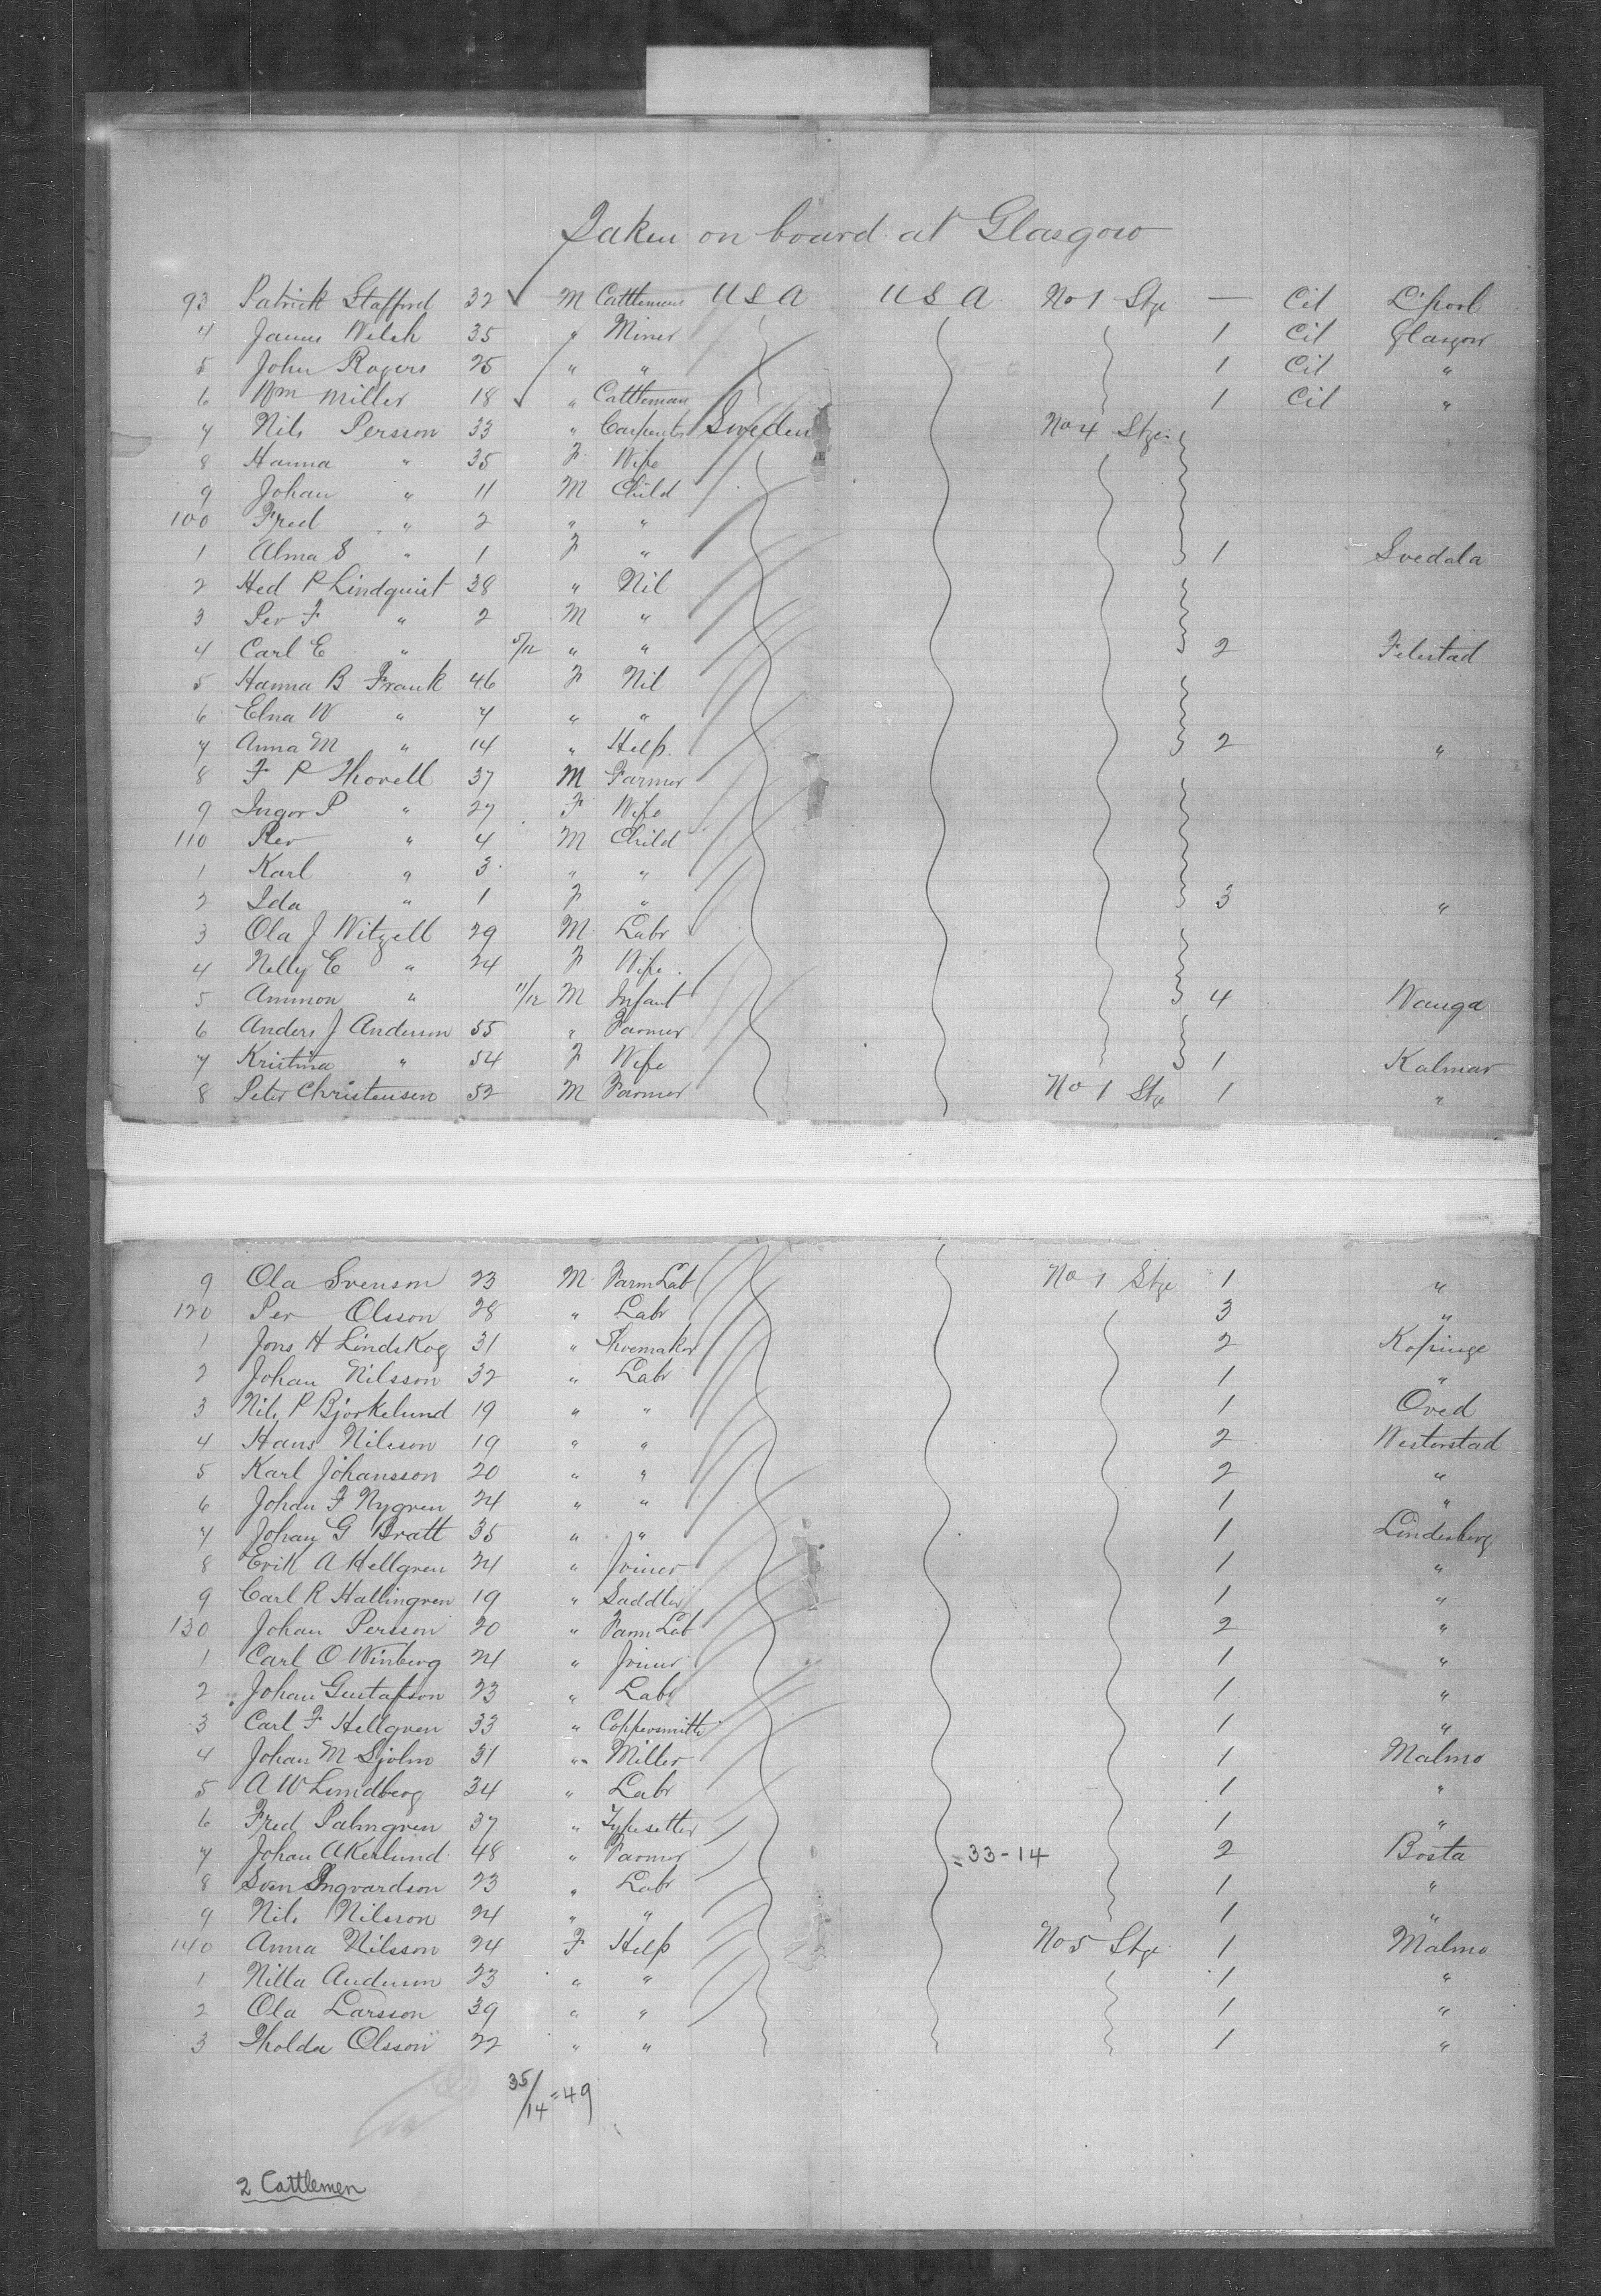 Taken on board at Glasgow
93 Patrick Stafford 32 ✓ M Cattleman U S A U S A No 1 Stge — Cit L'pool
4 James Welch 35 " Miner 1 Cit Glasgow
5 John Rogers 25 " " 1 Cit "
6 Wm Miller 18 ✓ " Cattleman 1 Cit "
7 Nils Persson 33 " Carpenter Sweden No 4 Stge
8 Hanna " 35 F Wife
9 Johan " 11 M Child
100 Fred " 2 " "
1 Alma S " 1 F " 1 Svedala
2 Hed P Lindquist 38 " Nil
3 Per F " 2 M "
4 Carl E " 5/12 " " 2 Felestad
5 Hanna B Frank 46 F Nil
6 Elna W " 7 " "
7 Anna M " 14 " Help 2 "
8 F P Thorell 37 M Farmer
9 Ingor P " 27 F Wife
110 Per " 4 M Child
1 Karl " 3 " "
2 Ida " 1 F " 3 "
3 Ola J Witzell 29 M Labr
4 Nelly E " 24 F Wife
5 Ammon " 11/12 M Infant 4 Wanga
6 Anders J Anderson 55 " Farmer
7 Kristina " 54 F Wife 1 Kalmar
8 Peter Christensen 52 M Farmer No 1 Stge 1 "
9 Ola Svenson 23 M Farm Lab No 1 Stge 1 "
120 Per Olsson 28 " Labr 3 "
1 Jons H Lindskog 31 " Shoemaker 2 Kopinge
2 Johan Nilsson 32 " Labr 1 "
3 Nils P Bjorkelund 19 " " 1 Oved
4 Hans Nilsson 19 " " 2 Westerstad
5 Karl Johansson 20 " " 2 "
6 Johan F Nygren 24 " " 1 "
7 Johan G Bratt 35 " " 1 Lindesberg
8 Erik A Hellgren 24 " Joiner 1 "
9 Carl R Hallingren 19 " Saddler 1 "
130 Johan Persson 20 " Farm Lab 2 "
1 Carl O Winberg 24 " Joiner 1 "
2 Johan Gustafson 23 " Labr 1 "
3 Carl F Hellgren 33 " Coppersmith 1 "
4 Johan M Sjolm 31 " Miller 1 Malmo
5 A W Lundberg 34 " Labr 1 "
6 Fred Palmgren 37 " Typesetter 1 "
7 Johan Akerlund 48 " Farmer = 33-14 2 Bosta
8 Sven Ingvardson 23 " Labr 1 "
9 Nils Nilsson 24 " " 1 "
140 Anna Nilsson 24 F Help No 5 Stge 1 Malmo
1 Nilla Anderson 23 " " 1 "
2 Ola Larsson 39 " " 1 "
3 Tholda Olsson 22 " " 1 "
35/14 = 49
2 Cattlemen